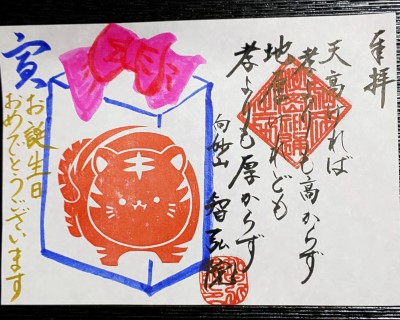 奉拝
天高けれど
孝よりも高からず
地厚けれども
孝よりも厚からず
向妙山 智弘
寅
お誕生日
おめでとうございます